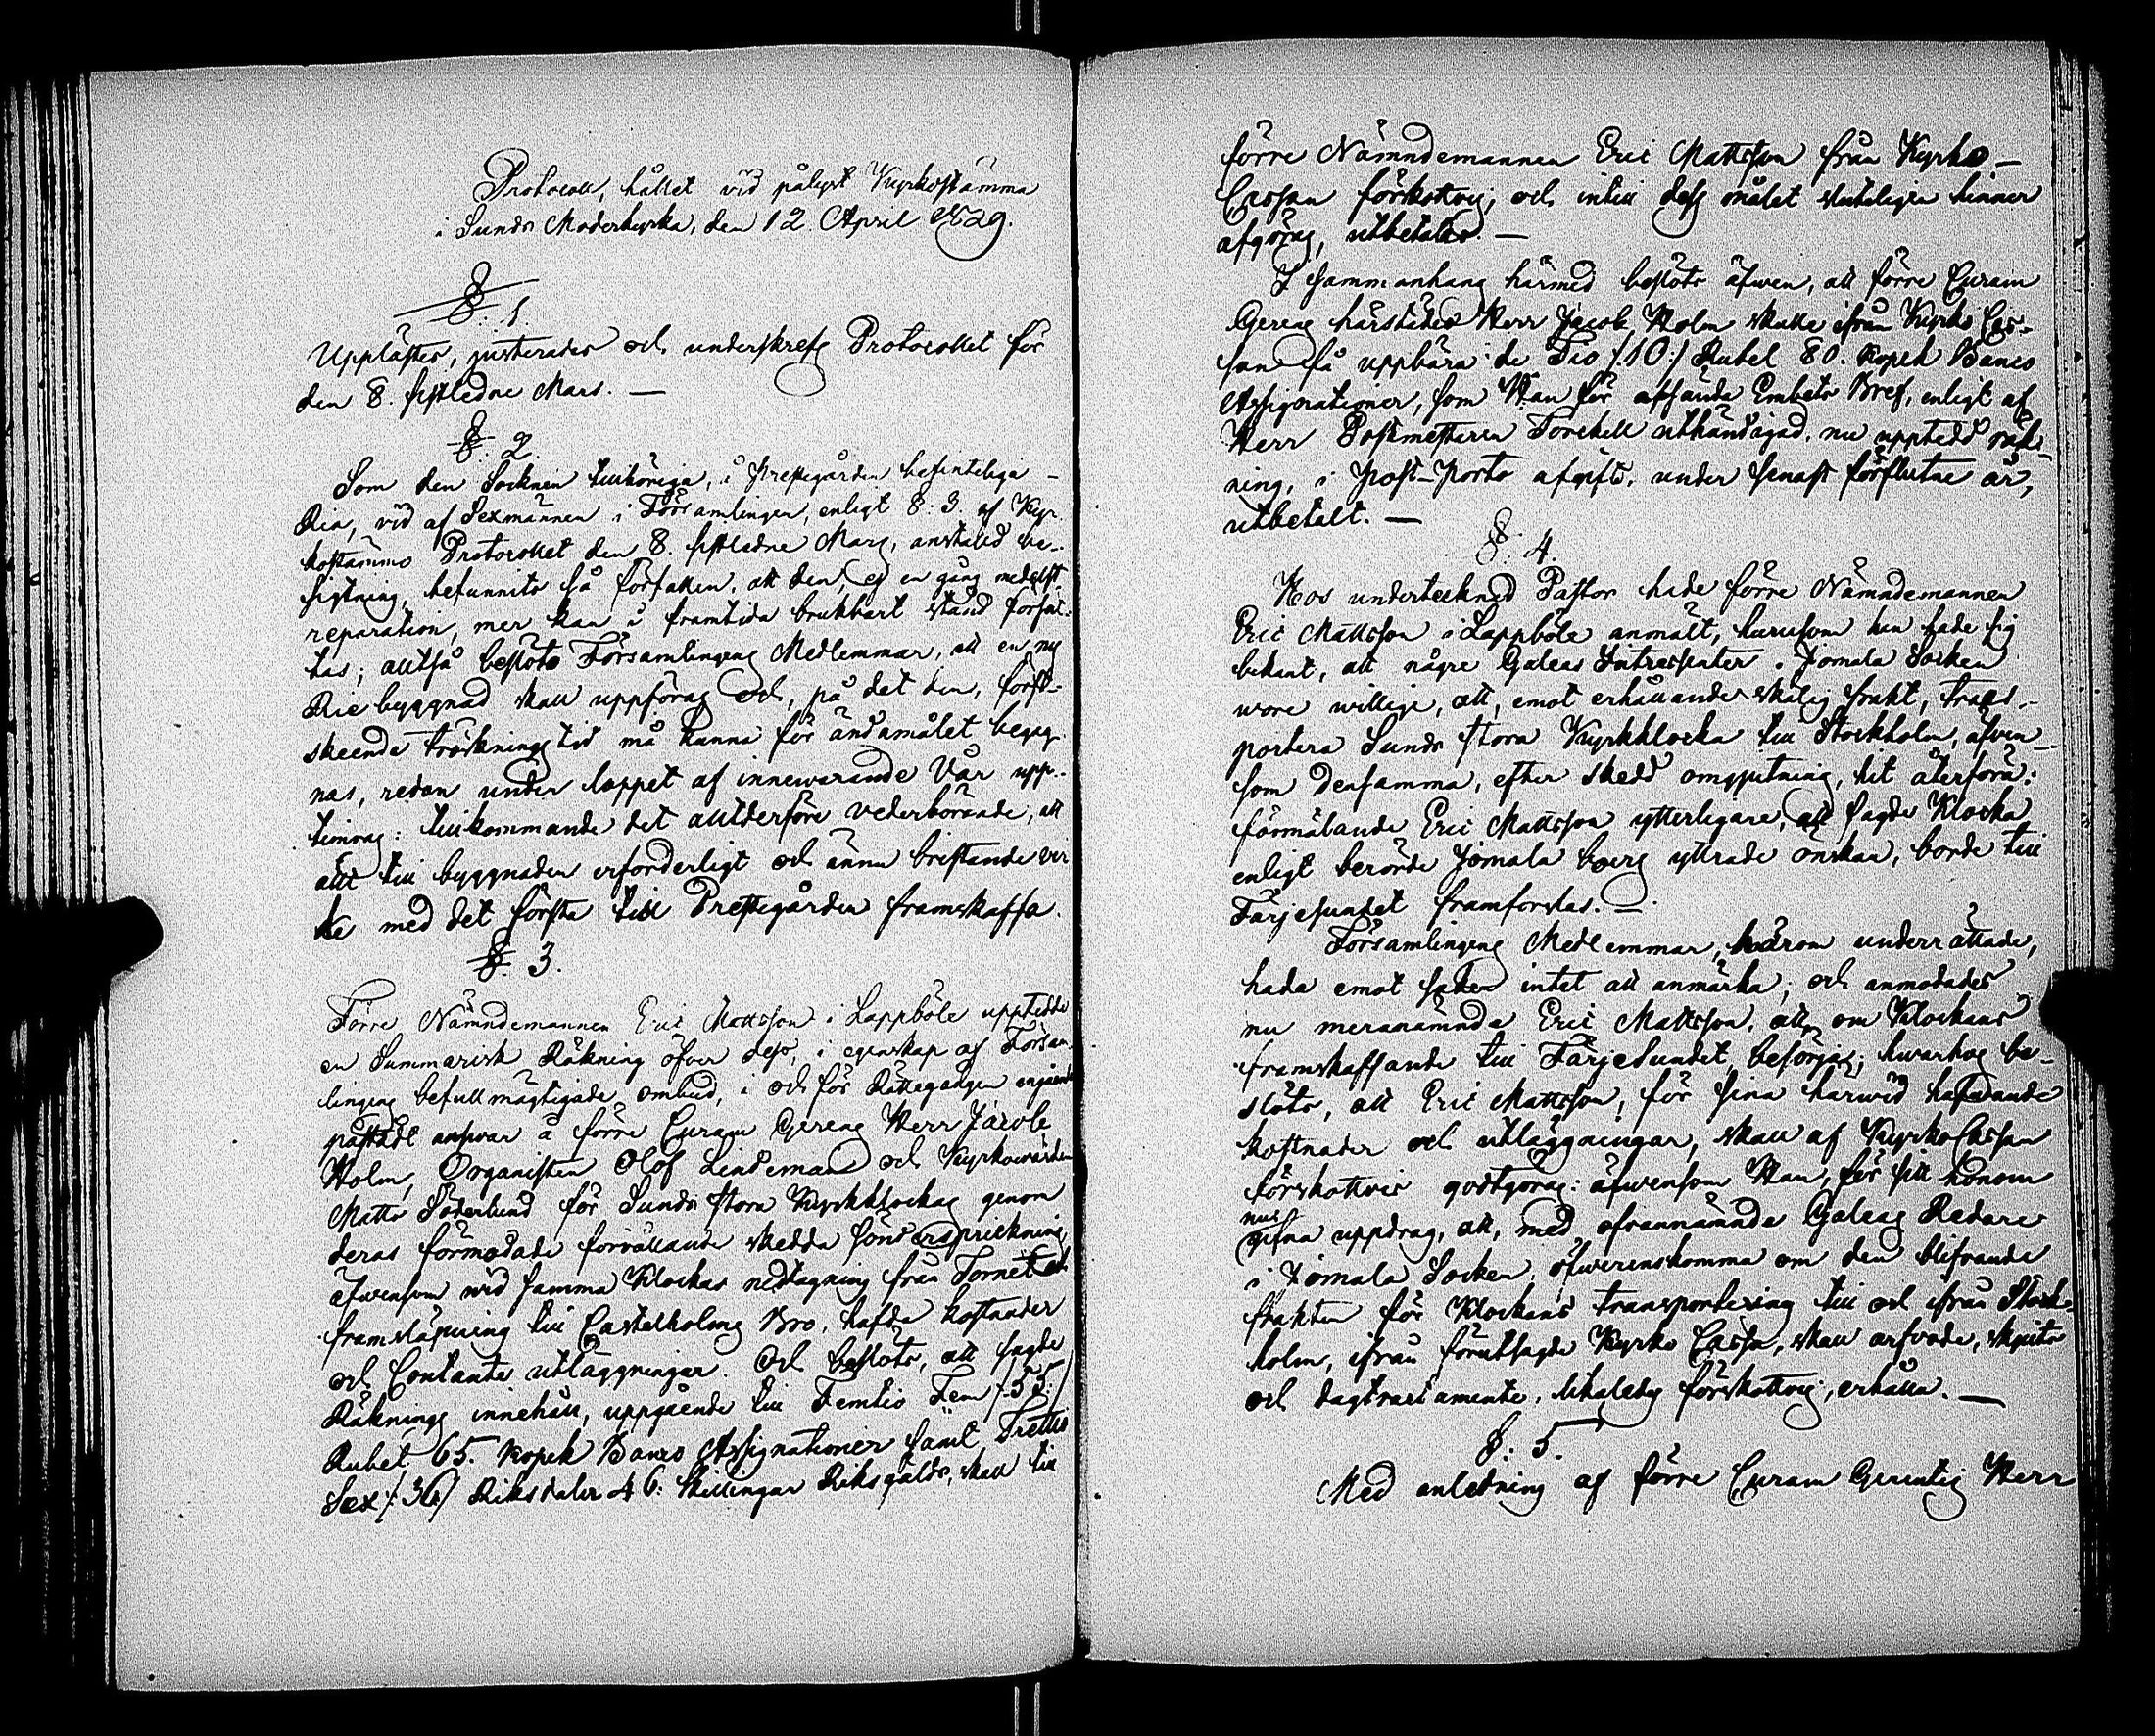 Protocoll, hållet vid pålyst Kyrkostämma
i Sunds Moderkyrka, den 12 April 1829.
§. 1.
Upplästes, justerades och underskrefs Protocollet för
den 8. sistledne Mars. —
§. 2.
Som den Socknen tillhöriga, i Prestegården befinteliga
Ria, vid af Sexmännen i Församlingen, enligt §: 3. af Kyr-
kostämmo Protocollet den 8. sistledne Mars, anstäld be-
sigtning, befunnits så förfallen, att den, ej en gång medelst
reparation, mer kan i framtida brukbart stånd försät-
tas; alltså beslöts Församlingens Medlemmar, att en ny
Rie byggnad skall uppföras och, på det den, först-
skeende tröskningstid må kunna för ändamålet begag-
nas, redan under loppet af innewarande Vår upp-
timras: tillkommande det alltderföre vederbörande, att
allt till byggnaden erforderligt och ännu bristande vir
ke med det första till Prestegården framskaffa.
§. 3.
Förre Nämndemannen Eric Mattsson i Lappböle uppteedde
en Summarisk Räkning öfver dess, i egenskap af Försam-
lingens befullmägtigade ombud, i och för Rättegången angående
påstådt answar å förre Curam Gerens Herr Jacob
Holm, Organisten Olof Lindeman och Kyrkowärden
Matts Söderlund för Sunds stora Kyrkklockas genom
deras förmodade förvållande skedda sönderspräckning,
äfwensom wid samma Klockas nedtagning från Tornet och
framsläpning till Castelholms Bro, hafda kostnader
och Contanta utläggningar. Och beslöts, att sagde
Räknings innehåll, uppgående till Femtio Fem /:55:/
Rubel 65. Kopek Banco Assignationer samt Trettio
Sex /:36/ Riksdaler 46. Skillingar Riksgälds, skall till
förre Nämndemannen Eric Mattsson från Kyrko-
Cassan förskottvis, och intill dess målet sluteligen hinner
afgöras, utbetalas. —
I sammanhang härmed beslöts äfwen, att förre Curam
Gerens härstädes Herr Jacob Holm skulle ifrån Kyrko Cas-
san få uppbära de Tio /:10:/ Rubel 80. Kopek Banco
Assignationer, som Han för afsända Embets Bref, enligt af
Herr Postmästaren Torekell uthändigad, nu uppteedd räk-
ning, i Post-Porto afgift, under senast förflutne år,
utbetalt. —
§. 4.
Hos undertecknad Pastor hade förre Nämndemannen
Eric Mattsson i Lappböle anmält, hurusom han hade sig
bekant, att någre Galeas Intressenter i Jomala Socken
wore willige, att, emot erhållande skälig frakt, trans-
portera Sunds stora Kyrkklocka till Stockholm, äfwen
som densamma, efter skedd omgjutning, hit återföra:
förmälande Eric Mattsson ytterligare, att sagde Klocka
enligt berörde Jomala boers yttrade önskan, borde till
Färjesundet framforslas. —
Församlingens Medlemmar, härom underrättade,
hada emot saken intet att anmärka; och anmodades
nu meranämnde Eric Mattsson, att om Klockans
framskaffande till Färjesundet besörja; hwarhos be-
slöts, att Eric Mattsson, för sina härwid hafwande
kostnader och utläggningar, skall af Kyrko Cassan
förskottvis godtgöras: äfwensom Han, för sitt honom
nu
gifna uppdrag, att, med ofvannämnde Galeas Redare
i Jomala Socken, öfwerenskomma om den blifvande
frakten för Klockans transportering till och ifrån Stock-
holm, ifrån förutsagde Kyrko Cassa, skall arfvode, skjuts
och dagtractamente, likaledes förskottvis, erhålla. —
§: 5.
Med anledning af förre Curam Gerentis Herr